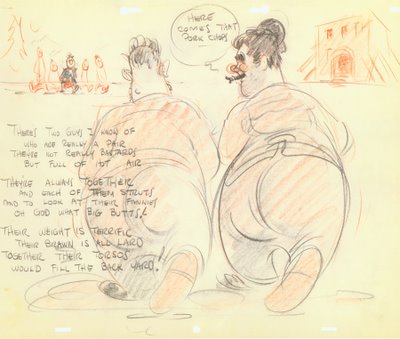 HERE
COMES THAT
PORK CHOP!
THERES TWO GUYS I KNOW OF
WHO ARE REALLY A PAIR
THEYRE NOT REALLY BASTARDS
BUT FULL OF HOT AIR
THEY'RE ALWAYS TOGETHER
AND EACH OF THEM STRUTS
AND TO LOOK AT THEIR FANNIES
OH GOD WHAT BIG BUTTS!
THEIR WEIGHT IS TERRIFIC
THEIR BRAWN IS ALL LARD
TOGETHER THEIR TORSOS
WOULD FILL THE BACK YARD!